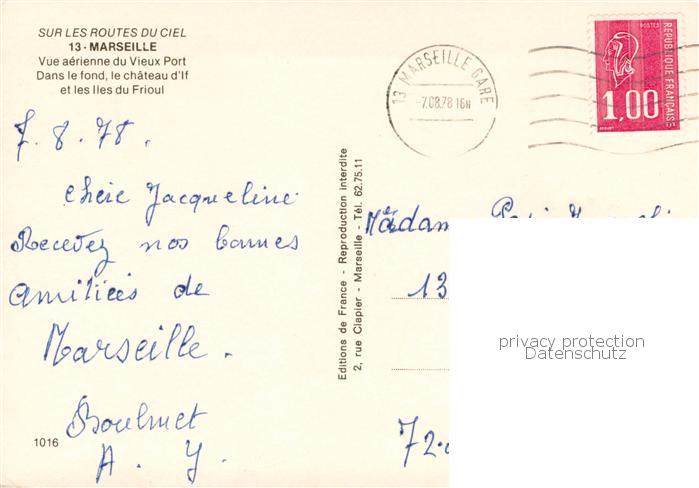 SUR LES ROUTES DU CIEL
13 - MARSEILLE
Vue aérienne du Vieux Port
Dans le fond, le château d'If
et les Iles du Frioul
13 MARSEILLE GARE
-7.08.78 16H
POSTES
RÉPUBLIQUE FRANÇAISE
1,00
7.8.78.
Chère Jacqueline
Recevez nos bonnes
amitiées de
Marseille.
A. Y.
1016
Editions de France - Reproduction interdite
2, rue Clapier - Marseille - Tél. 62.75.11
Madam
13
72
privacy protection
Datenschutz